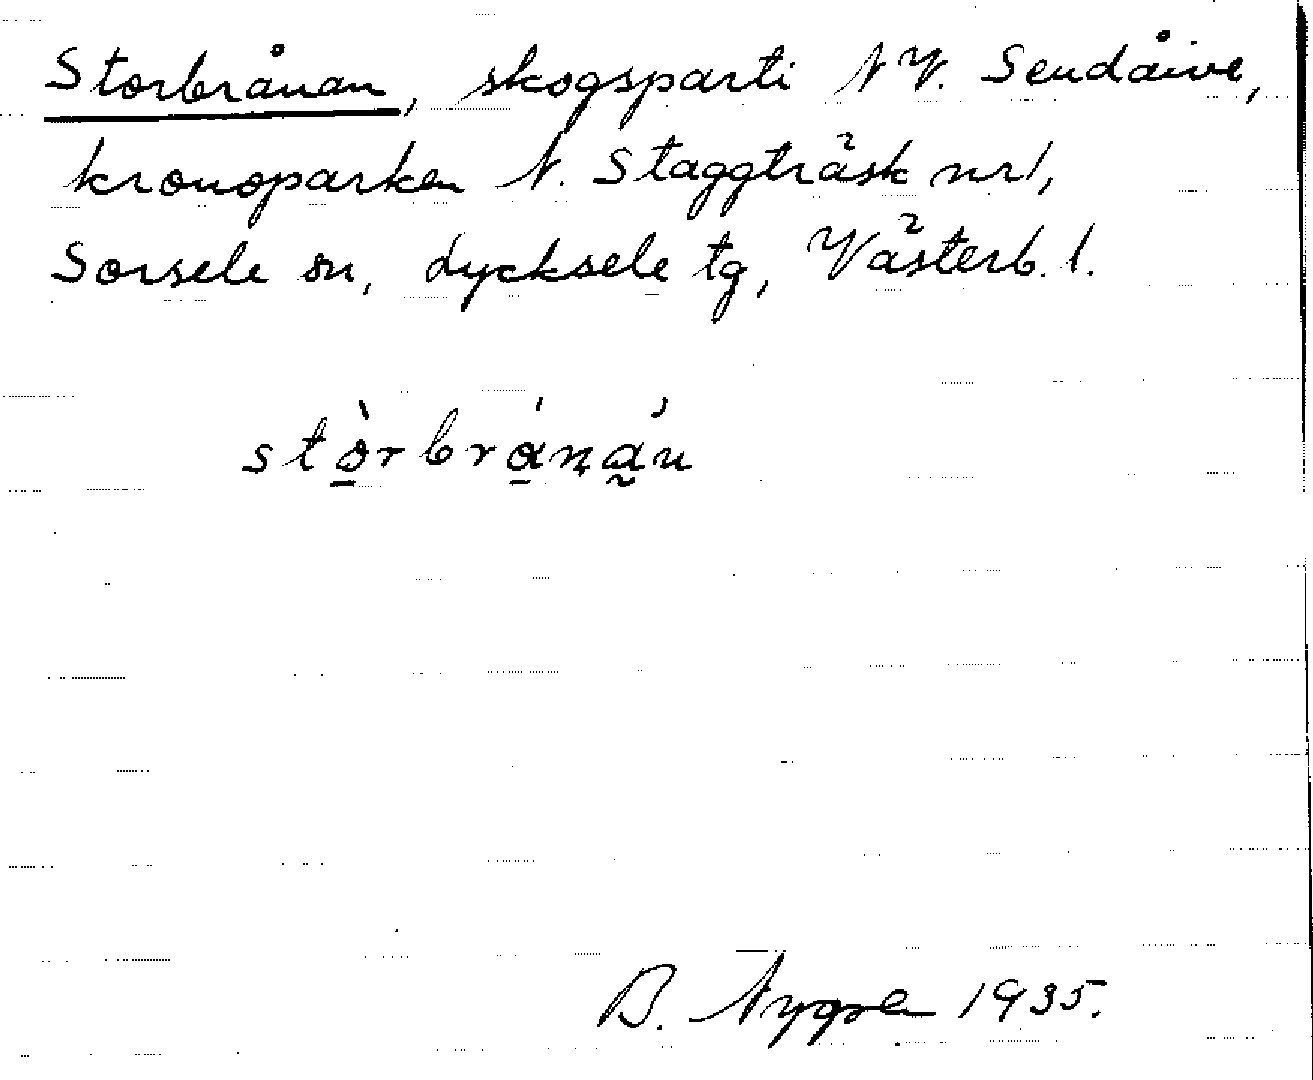 Storbrånan, skogsparti NV. Sendåive,
kronoparken N. Staggträsk nr 1,
Sorsele sn, Lycksele tg, Västerb. l.
stòrbránán
B. Nygren 1935.